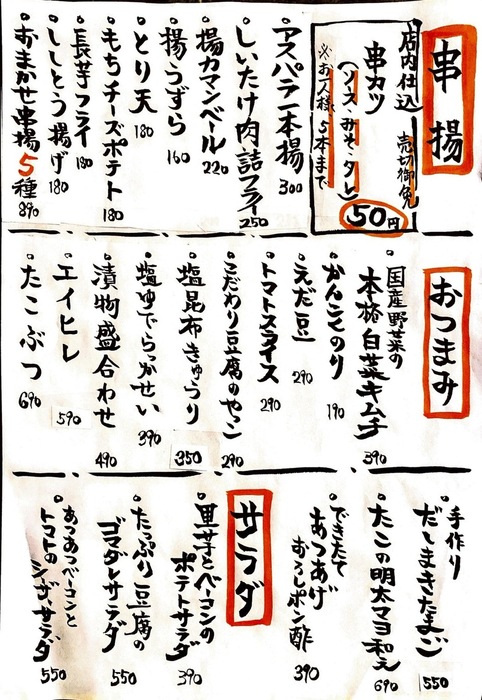 串揚
店内仕込
売切御免
串カツ
(ソース みそ タレ)
※お一人様、5本まで
50円
アスパラ一本揚
300
しいたけ肉詰フライ
250
揚カマンベール
220
揚うずら
160
とり天
180
もちチーズポテト
180
長芋フライ
180
ししとう揚げ
180
おまかせ串揚5種
890
おつまみ
国産野菜の
本格白菜キムチ
390
かんこくのり
190
えだ豆
290
トマトスライス
290
こだわり豆腐のやっこ
290
塩昆布きゅうり
350
塩ゆでらっかせい
390
漬物盛合わせ
490
エイヒレ
590
たこぶつ
690
手作り
だしまきたまご
550
たこの明太マヨ和え
690
できたて
あつあげ
おろしポン酢
390
サラダ
里芋とベーコンの
ポテトサラダ
390
たっぷり豆腐の
ゴマダレサラダ
550
あつあつベーコンと
トマトのシーザーサラダ
550